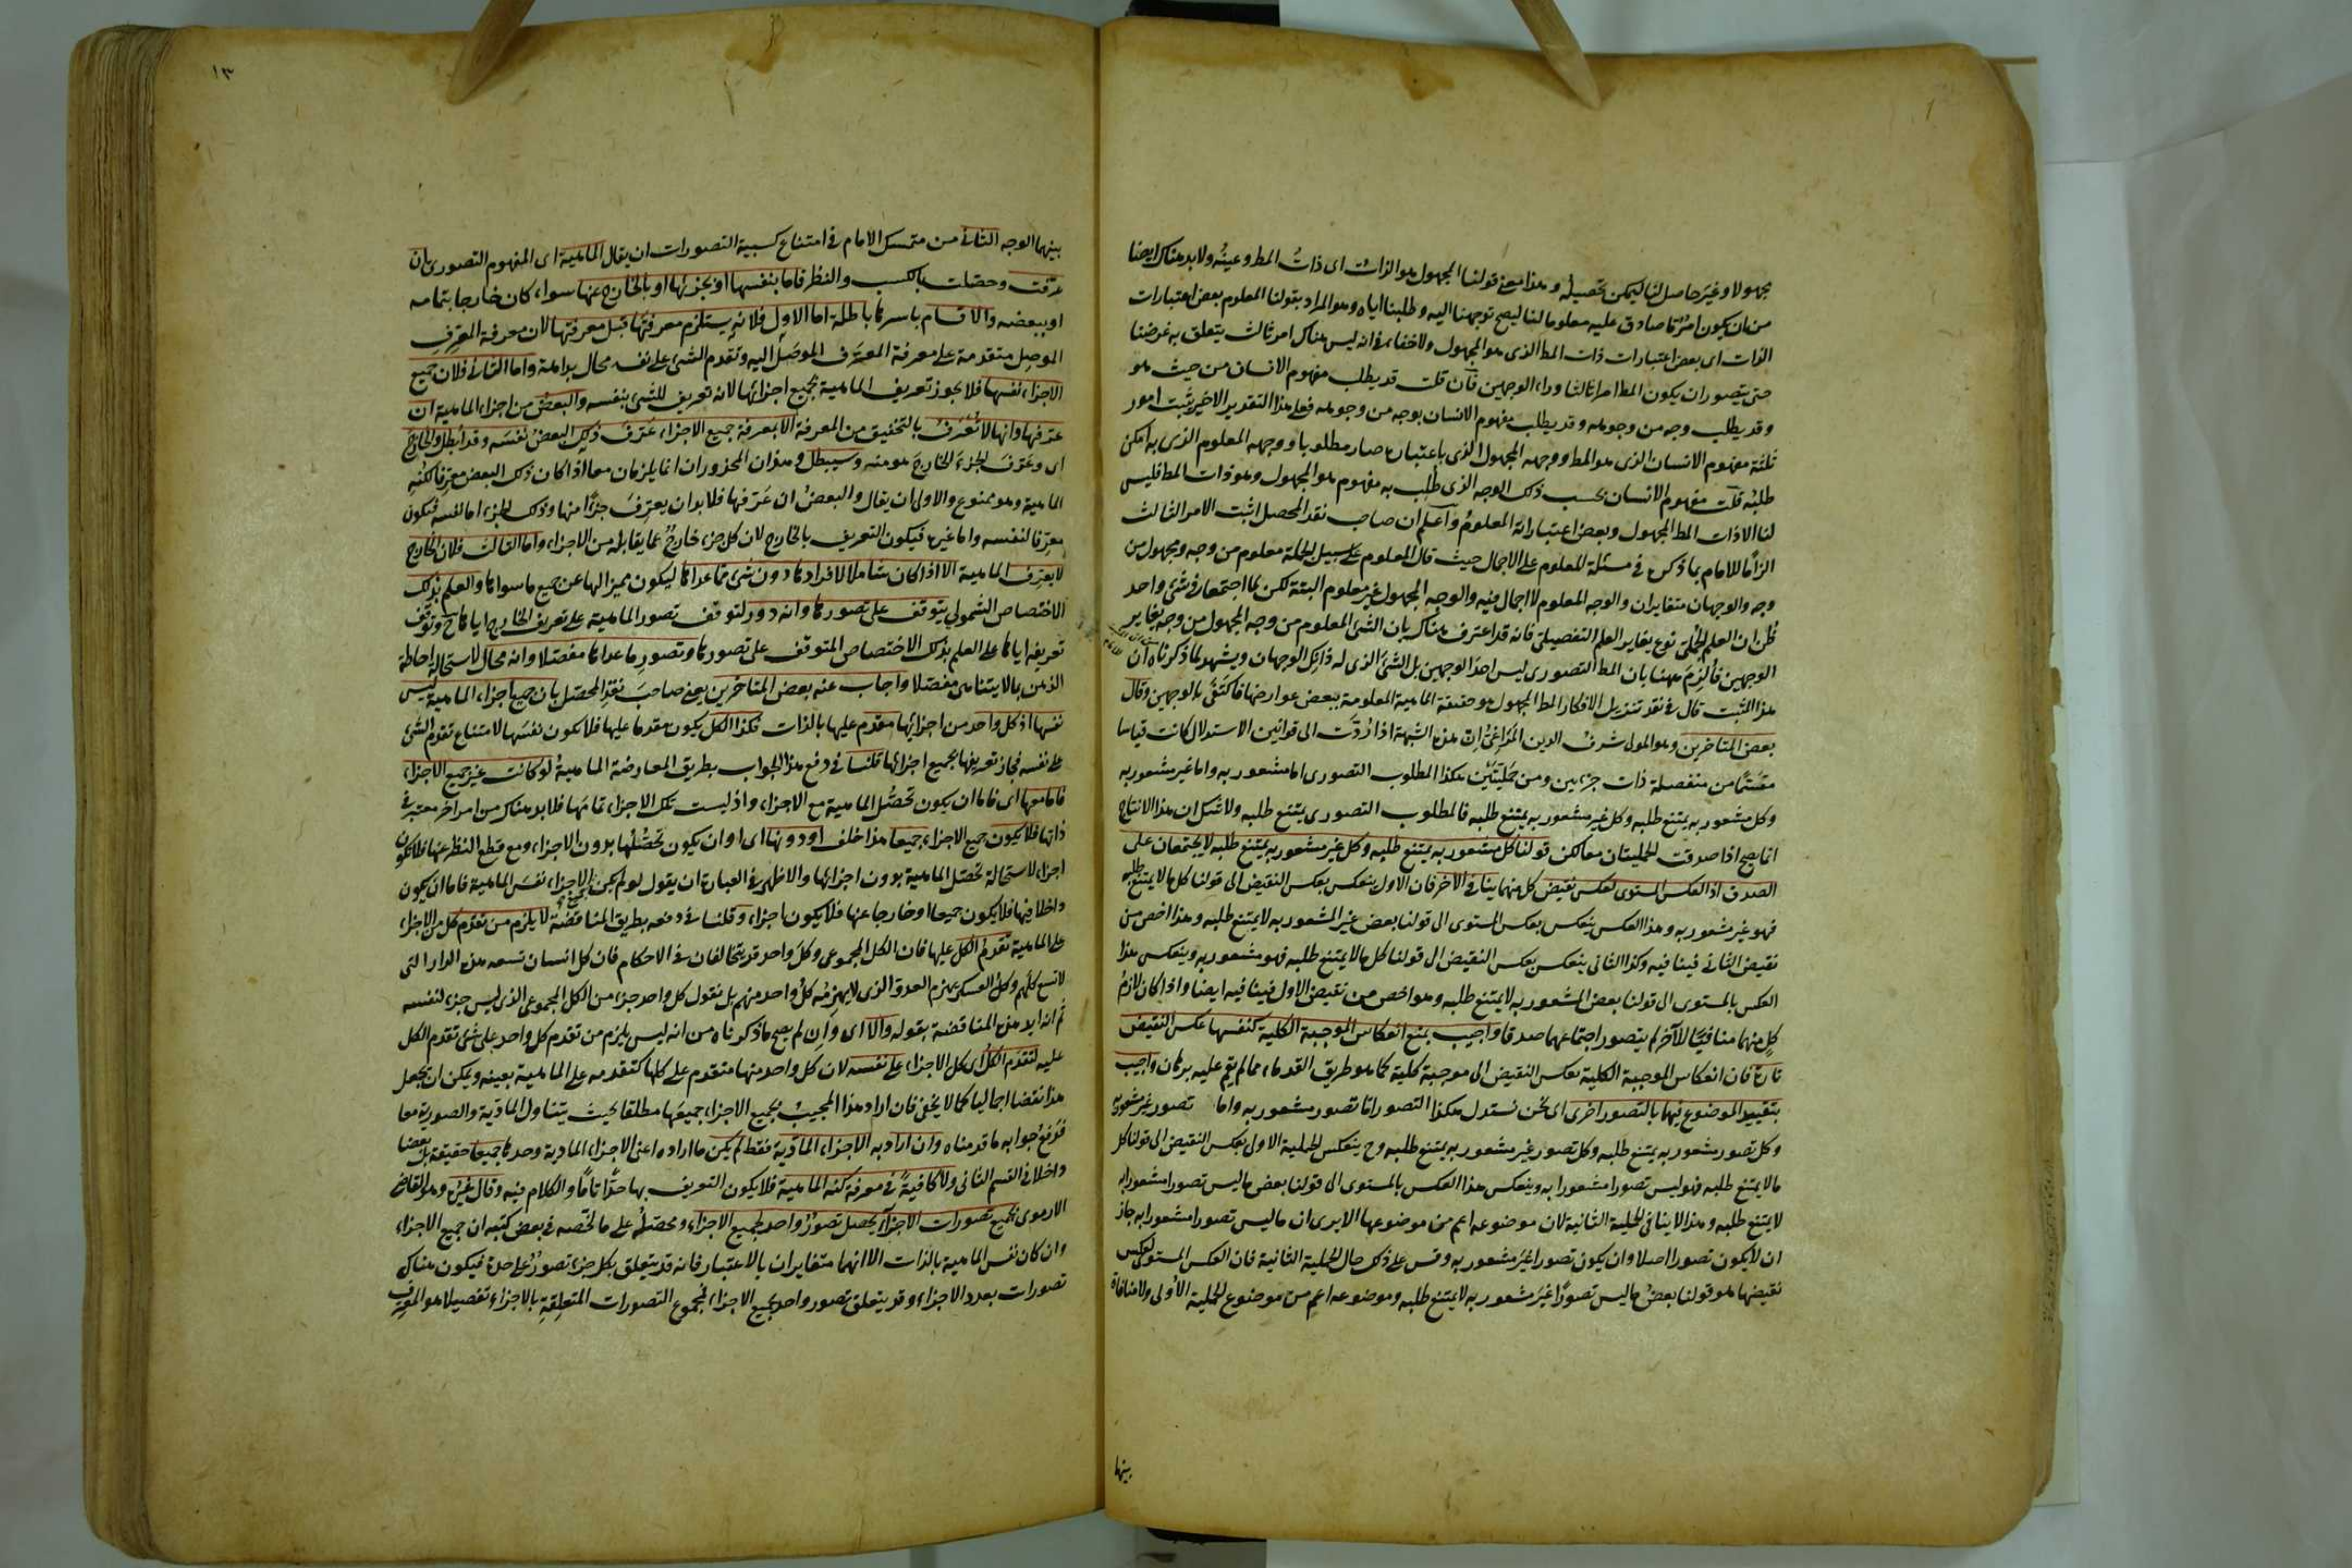 مجهولا وغير حاصل لنا ليمكن تحصيله وهذا معنى قولنا المجهول هو الذات اى ذات المط وعينه ولا بد هناك ايضا
من ان يكون امر ما صادق عليه معلوما لنا ليصح توجهنا اليه وطلبنا اياه وهو المراد بقولنا المعلوم بعض اعتبارات
الذات اى بعض اعتبارات ذات المط الذى هو المجهول ولا خفاء فى انه ليس هناك امر ثالث يتعلق به غرضنا
حتى يتصور ان يكون المط امرا ثالثا وراء الوجهين فان قلت قد يطلب مفهوم الانسان من حيث هو
وقد يطلب وجه من وجوهه وقد يطلب مفهوم الانسان بوجه من وجوهه فعلى هذا التقدير الاخير يثبت امور
ثلثة مفهوم الانسان الذى هو المط ووجهه المجهول الذى باعتباره صار مطلوبا ووجهه المعلوم الذى به امكن
طلبه قلت مفهوم الانسان بحسب ذلك الوجه الذى طلب به مفهوم هو المجهول وهو ذات المط فليس
لنا الا ذات المط المجهول وبعض اعتباراته المعلوم واعلم ان صاحب نقد المحصل اثبت الامر الثالث
الزاما للامام بما ذكره فى مسئلة المعلوم على الاجمال حيث قال المعلوم على سبيل الجملة معلوم من وجه ومجهول من
وجه والوجهان متغايران والوجه المعلوم لا اجمال فيه والوجه المجهول غير معلوم البتة لكن لما اجتمعا فى شئ واحد
ظن ان العلم الجملى نوع يغاير العلم التفصيلى فانه قد اعترف هناك بان الشئ المعلوم من وجه المجهول من وجه يغاير
الوجهين فالزم ههنا بان المط التصورى ليس احد الوجهين بل الشئ الذى له ذانك الوجهان ويشهد بما ذكرناه ان
هذا المثبت قال فى نقد تنزيل الافكار المط المجهول هو حقيقة الماهية المعلومة ببعض عوارضها فاكتفى بالوجهين وقال
بعض المتاخرين وهو المولى شرف الدين المراغى ان هذه الشبهة اذا ردت الى قوانين الاستدلال كانت قياسا
مقسما من منفصلة ذات جزءين ومن حمليتين هكذا المطلوب التصورى اما مشعور به واما غير مشعور به
وكل مشعور به يمتنع طلبه وكل غير مشعور به يمتنع طلبه فالمطلوب التصورى يمتنع طلبه ولا شك ان هذا الانتاج
انما يصح اذا صدقت الحمليتان معا لكن قولنا كل مشعور به يمتنع طلبه وكل غير مشعور به يمتنع طلبه لا يجتمعان على
الصدق اذ العكس المستوى لعكس نقيض كل منهما ينافى الاخر فان الاول ينعكس بعكس النقيض الى قولنا كل ما لا يمتنع طلبه
فهو غير مشعور به وهذا العكس ينعكس بعكس المستوى الى قولنا بعض غير المشعور به لا يمتنع طلبه وهذا اخص من
نقيض الثانى فينافيه وكذا الثانى ينعكس بعكس النقيض الى قولنا كل ما لا يمتنع طلبه فهو مشعور به وينعكس هذا
العكس بالمستوى الى قولنا بعض المشعور به لا يمتنع طلبه وهو اخص من نقيض الاول فينافيه ايضا واذا كان لازم
كل منهما منافيا للآخر لم يتصور اجتماعهما صدقا واجيب بمنع انعكاس الموجبة الكلية كنفسها عكس النقيض
تارة فان انعكاس الموجبة الكلية بعكس النقيض الى موجبة كلية كما هو طريق القدماء مما لم يقم عليه برهان واجيب
بتقييد الموضوع فيها بالتصور اخرى اى نحن نستدل هكذا التصور اما تصور مشعور به واما تصور غير مشعور به
وكل تصور مشعور به يمتنع طلبه وكل تصور غير مشعور به يمتنع طلبه وح ينعكس الحملية الاول بعكس النقيض الى قولنا كل
ما لا يمتنع طلبه فهو ليس تصورا مشعورا به وينعكس هذا العكس بالمستوى الى قولنا بعض ما ليس تصورا مشعورا به
لا يمتنع طلبه وهذا لا ينافى الحملية الثانية لان موضوعه اعم من موضوعها الا يرى ان ما ليس تصورا مشعورا به جاز
ان لا يكون تصورا اصلا وان يكون تصورا غير مشعور به وقس على ذلك حال الحملية الثانية فان العكس المستوى لعكس
نقيضها هو قولنا بعض ما ليس تصورا غير مشعور به لا يمتنع طلبه وموضوعه اعم من موضوع الحملية الاولى ولا منافاة
بينها
١٣
بينهما الوجه الثانى من متمسك الامام فى امتناع كسبية التصورات ان يقال الماهية اى المفهوم التصورى بان
عرفت وحصلت بالكسب والنظر فاما بنفسها او بجزئها او بالخارج عنها سواء كان خارجا بتمامه
او ببعضه والاقسام باسرها باطلة اما الاول فلانه يستلزم معرفتها قبل معرفتها لان معرفة المعرف
الموصل متقدمة على معرفة المعرف الموصل اليه وتقدم الشئ على نفسه محال بداهة واما الثانى فلان جميع
الاجزاء نفسها فلا يجوز تعريف الماهية بجميع اجزائها لانه تعريف للشئ بنفسه والبعض من اجزاء الماهية ان
عرفها وانها لا تعرف بالتحقيق من المعرفة الا بمعرفة جميع الاجزاء عرف ذلك البعض نفسه وقد ابطل والخارج
اى وعرف الجزء الخارج هو منه وسيبطل وهذان المحذوران انما يلزمان معا اذا كان ذلك البعض معرفا لكنه
الماهية وهو ممنوع والاولى ان يقال والبعض ان عرفها فلا بد ان يعرف جزءا منها وذلك الجزء اما نفسه فيكون
معرفا لنفسه واما غيره فيكون التعريف بالخارج لان كل جزء خارج عما يقابله من الاجزاء واما الثالث فلان الخارج
لا يعرف الماهية الا اذا كان شاملا لافرادها دون شئ مما عداها ليكون مميزا لها عن جميع ما سواها والعلم بذلك
الاختصاص الشمولى يتوقف على تصورها وانه دور لتوقف تصور الماهية على تعريف الخارج اياها ح وتوقف
تعريفه اياها على العلم بذلك الاختصاص المتوقف على تصورها وتصور ما عداها مفصلا وانه محال لاستحالة احاطة
الذهن بما لا يتناهى مفصلا واجاب عنه بعض المتاخرين يعنى صاحب نقد المحصل بان جميع اجزاء الماهية ليس
نفسها اذ كل واحد من اجزائها مقدم عليها بالذات فكذا الكل يكون مقدما عليها فلا يكون نفسها لامتناع تقدم الشئ
على نفسه فجاز تعريفها بجميع اجزائها قلنا فى دفع هذا الجواب بطريق المعارضة الماهية لو كانت غير جميع الاجزاء
فاما معها اى فاما ان يكون تحصل الماهية مع الاجزاء واذ ليست تلك الاجزاء تمامها فلا بد هناك من امر آخر معتبر فى
ذاتها فلا يكون جميع الاجزاء جميعا هذا خلف او دونها اى او ان يكون تحصلها بدون الاجزاء ومع قطع النظر عنها فلا تكون
اجزاء لاستحالة تحصل الماهية بدون اجزائها والاظهر فى العبارة ان يقول لو لم يكن جميع الاجزاء نفس الماهية فاما ان يكون
داخلا فيها فلا يكون جميعا او خارجا عنها فلا يكون اجزاء وقلنا فى دفعه بطريق المناقضة لا يلزم من تقدم كل من الاجزاء
على الماهية تقدم الكل عليها فان الكل المجموعى وكل واحد قد يتخالفان فى الاحكام فان كل انسان تسعه هذه الدار التى
لا تسع كلهم وكل العسكر يهزم العدو الذى لا يهزمه كل واحد منهم بل نقول كل واحد جزء من الكل المجموعى الذى ليس جزء لنفسه
ثم انه ايد هذه المناقضة بقوله والا اى وان لم يصح ما ذكرناه من انه ليس يلزم من تقدم كل واحد على شئ تقدم الكل
عليه لتقدم الكل اى كل الاجزاء على نفسه لان كل واحد منها متقدم على كلها كتقدمه على الماهية بعينه ويمكن ان يجعل
هذا نقضا اجماليا كما لا يخفى فان اراد هذا المجيب بجميع الاجزاء جميعها مطلقا بحيث يتناول المادية والصورية معا
فدفع جوابه ما قدمناه وان اراد به الاجزاء المادية فقط لم يكن ما اراده اعنى الاجزاء المادية وحدها جميعا حقيقة بل بعضا
داخلا فى القسم الثانى ولا كافية فى معرفة كنه الماهية فلا يكون التعريف بها حدا تاما والكلام فيه وقال غيره وهو القاضى
الارموى بجميع تصورات الاجزاء يحصل تصور واحد لجميع الاجزاء ومحصله على ما لخصه فى بعض كتبه ان جميع الاجزاء
وان كان نفس الماهية بالذات الا انهما متغايران بالاعتبار فانه قد يتعلق بكل جزء تصور على حدة فيكون هناك
تصورات بعدد الاجزاء وقد يتعلق تصور واحد بجميع الاجزاء فمجموع التصورات المتعلقة بالاجزاء تفصيلا هو المعرف